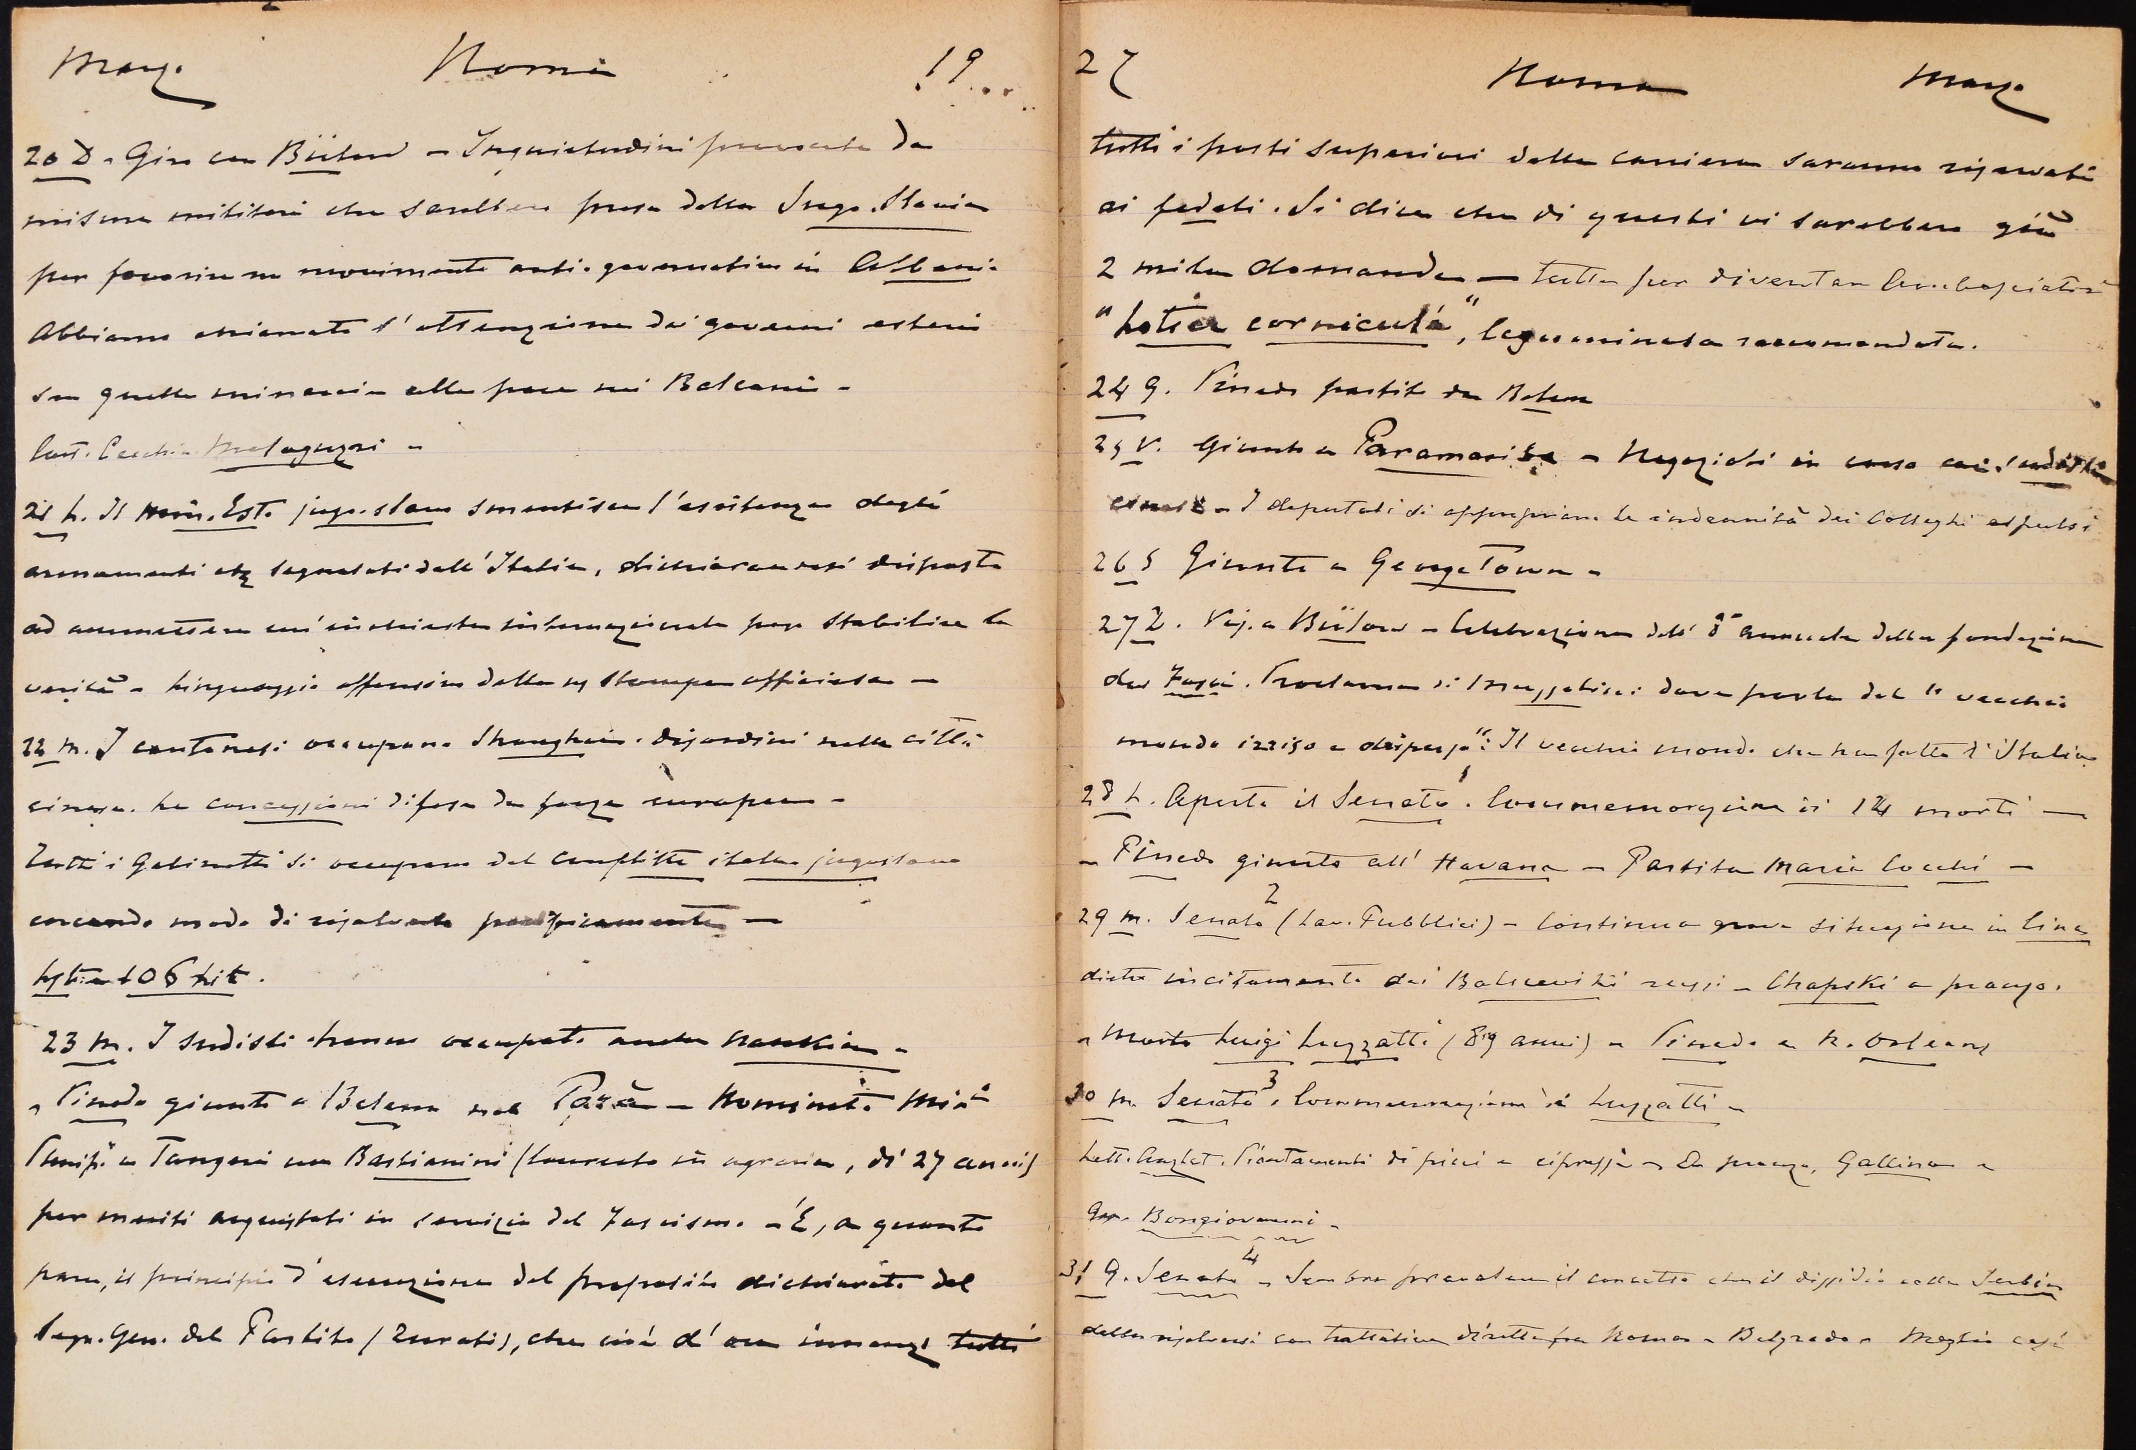 Marzo Roma 19
20 D. Giro con Bülow – Inquietudini provocate da
misure militari che sarebbero prese dalla Jugo.Slavia
per favorire un movimento anti-governativo in Albania
Abbiamo chiamato l'attenzione dei governi esteri
su quella minaccia alla pace nei Balcani –
Cecchi Malaguzzi –
21 L. Il Min. Est. jugo-slavo smentisce l'esistenza degli
armamenti etc segnalati dall'Italia, dichiarandosi disposto
ad ammettere un'inchiesta internazionale per stabilire la
verità – Linguaggio offensivo della stampa officiosa –
22 M. I cantonesi occupano Shanghai. Disordini nella città
cinese. Le concessioni difese da forze europee –
Tutti i Gabinetti si occupano del conflitto italo jugoslavo
cercando modo di risolverlo pacificamente –
106 kil.
23 M. I sudisti hanno occupato anche Nankin –
– Pinedo giunto a Belem nel Parà – Nominato Min.
a Tangeri un Bastianini (laureato in agraria, di 27 anni)
per meriti acquistati in servizio del Fascismo. – È, a quanto
pare, il principio d'esecuzione del proposito dichiarato dal
Segr. Gen. del Partito (Turati), che cioè d'ora innanzi tutti
27 Roma Marzo
tutti i posti superiori della carriera saranno riservati
ai fedeli. Si dice che di questi vi sarebbero già
2 mila domande – tutte per diventare Ambasciatori
"Lotier corniculé", leguminosa raccomandata.
24 G. Pinedo partito da Belem
25 V. Giunto a Paramaribo – Negoziati in corso coi sudisti
cinesi – I deputati si appropriano le indennità dei Colleghi espulsi
26 S Giunto a GeorgeTown –
27 D. Vis. a Bülow – Celebrazione dell' 8° annuale della fondazione
dei Fasci. Proclama di Mussolini: dove parla del "vecchio
mondo irriso e disperso": Il vecchio mondo che ha fatto l'Italia
28 L. Aperto il Senato 1. Commemorazione di 14 morti –
– Pinedo giunto all'Havana – Partita Maria Cocchi –
29 M. Senato 2 (Lav. Pubblici) – Continua grave situazione in Cina
dietro incitamento dei Bolscevichi russi – Chapski a pranzo.
– Morto Luigi Luzzatti (89 anni) – Pinedo a N. Orleans
30 M. Senato 3. Commemorazione di Luzzatti –
Piantamenti di pini e cipressi – Da pranzo, Gallina e
Gen. Bongiovanni –
31 G. Senato 4 – Sembra prevalere il concetto che il dissidio colla Serbia
debba risolversi con trattative dirette fra Roma e Belgrado – Meglio così